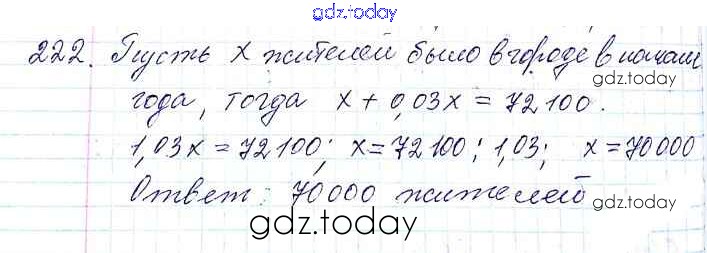 gdz.today
222. Пусть x жителей было в городе в начале
gdz.today
года, тогда x + 0,03x = 72100.
1,03x = 72100; x = 72100 : 1,03; x = 70000
Ответ: 70000 жителей
gdz.today
gdz.today